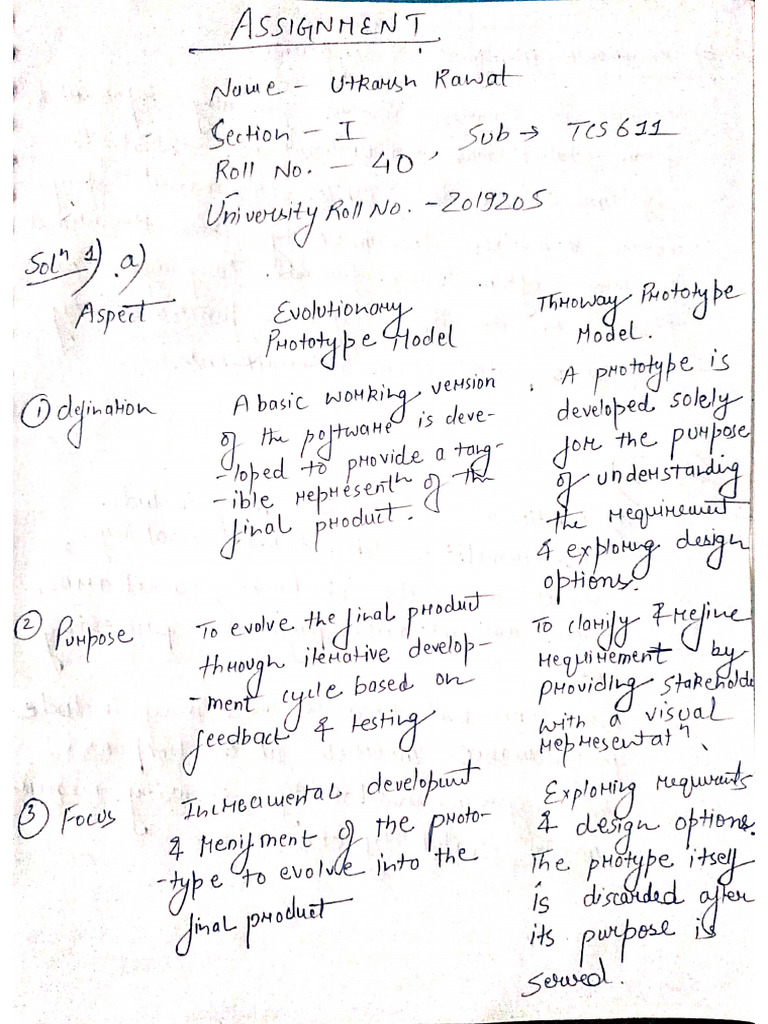 ASSIGNMENT
Name - Utkarsh Rawat
Section - I , Sub → TCS611
Roll No. - 40
University Roll No. - 2019205
Solⁿ 1) .a)
Aspect
Evolutionary
Prototype Model
Throway Prototype
Model.
① defination
A basic working version
of the poftware is deve-
-loped to provide a tang-
-ible representⁿ of the
final product.
. A prototype is
developed solely
for the purpose
of understanding
the requirement
& exploring design
options.
② Purpose
To evolve the final product
through iterative develop-
-ment cycle based on
feedback & testing
To clarify & refine
requirement by
providing stakeholde
with a visual
representatⁿ.
③ Focus
Increamental developmt
& renifment of the proto-
-type to evolve into the
final product
Exploring requirmts
& design options.
The protype itself
is discarded after
its purpose is
served.